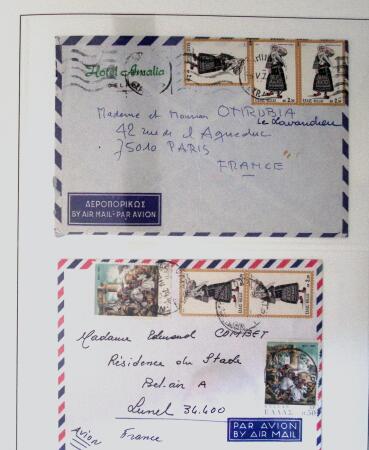 Hotel Amalia
DELPHI
Madame et Monsieur OMRUBIA
Le Lavandieu
42 rue de l Aqueduc
75010 PARIS
FRANCE
ΑΕΡΟΠΟΡΙΚΩΣ
BY AIR MAIL-PAR AVION
Madame Edmond COMBET
Résidence du Stade
Bel-air A
Lunel 34.400
France
Avion
PAR AVION
BY AIR MAIL
ΕΛΛΑΣ